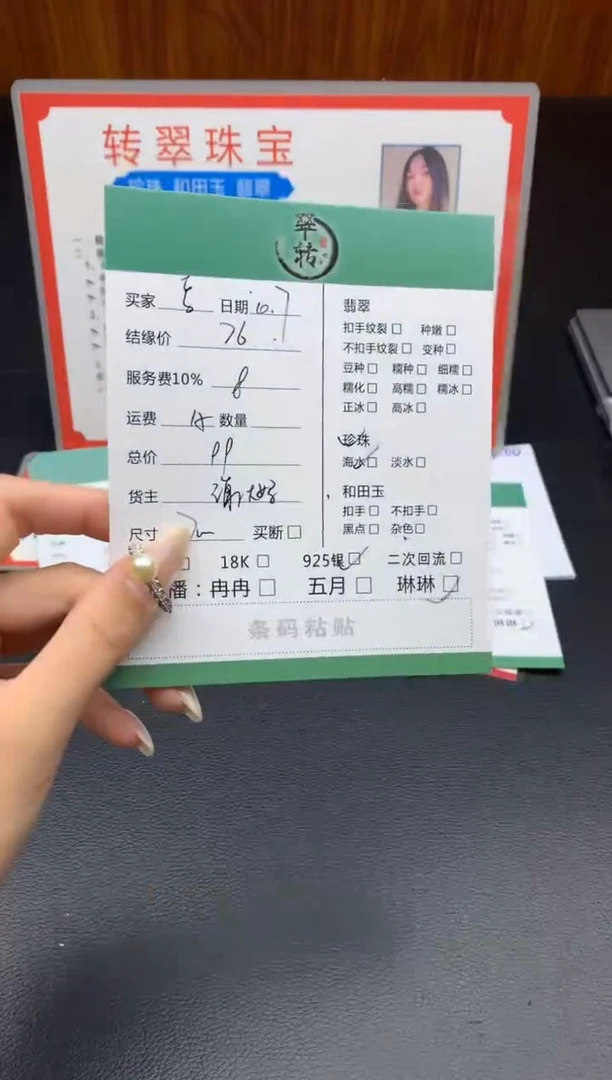 转翠珠宝
珍珠 和田玉 翡翠
翠转
买家 日期 10.7
结缘价 76
服务费10% 8
运费 15 数量
总价 99
货主
尺寸 买断
18K 925银 二次回流
播：冉冉 五月 琳琳
条码粘贴
翡翠
扣手纹裂 种嫩
不扣手纹裂 变种
豆种 糯种 细糯
糯化 高糯 糯冰
正冰 高冰
珍珠
海水 淡水
和田玉
扣手 不扣手
黑点 杂色
琳琳